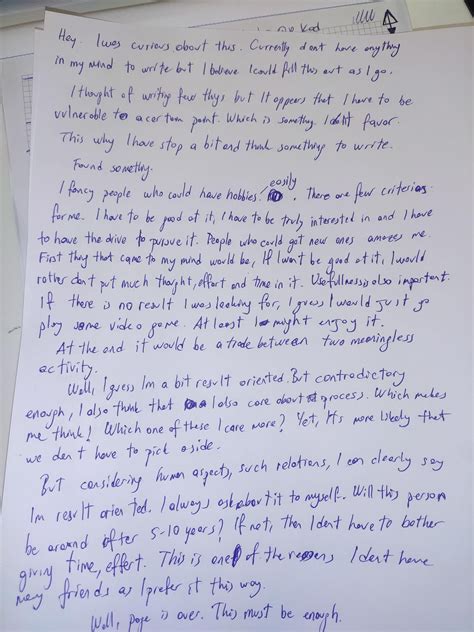 Hey. I was curious about this. Currently dont have anything
in my mind to write but I believe I could fill this out as I go.
I thought of writing few thgs but It appears that I have to be
vulnerable to a certain point. Which is something I don't favor.
This why I have stop a bit and think something to write.
Found something.
I fancy people who could have hobbies easily. There are few criterias
for me. I have to be good at it, I have to be truly interested in and I have
to have the drive to pursue it. People who could got new ones amazes me.
First thg that came to my mind would be, If I wont be good at it, I would
rather dont put much thought, effort and time in it. Usefullness is also important.
If there is no result I was looking for, I guess I would just go
play some video game. At least I might enjoy it.
At the end it would be a trade between two meaningless
activity.
Well, I guess Im a bit result oriented. But contradictory
enough, I also think that I also care about process. Which makes
me think! Which one of these I care more? Yet, Its more likely that
we don't have to pick a side.
But considering human aspects, such relations, I can clearly say
Im result oriented. I always ask about it to myself. Will this person
be around after 5-10 years? If not, then I dont have to bother
giving time, effort. This is one of the reasons I dont have
many friends as I prefer it this way.
Well, page is over. This must be enough.